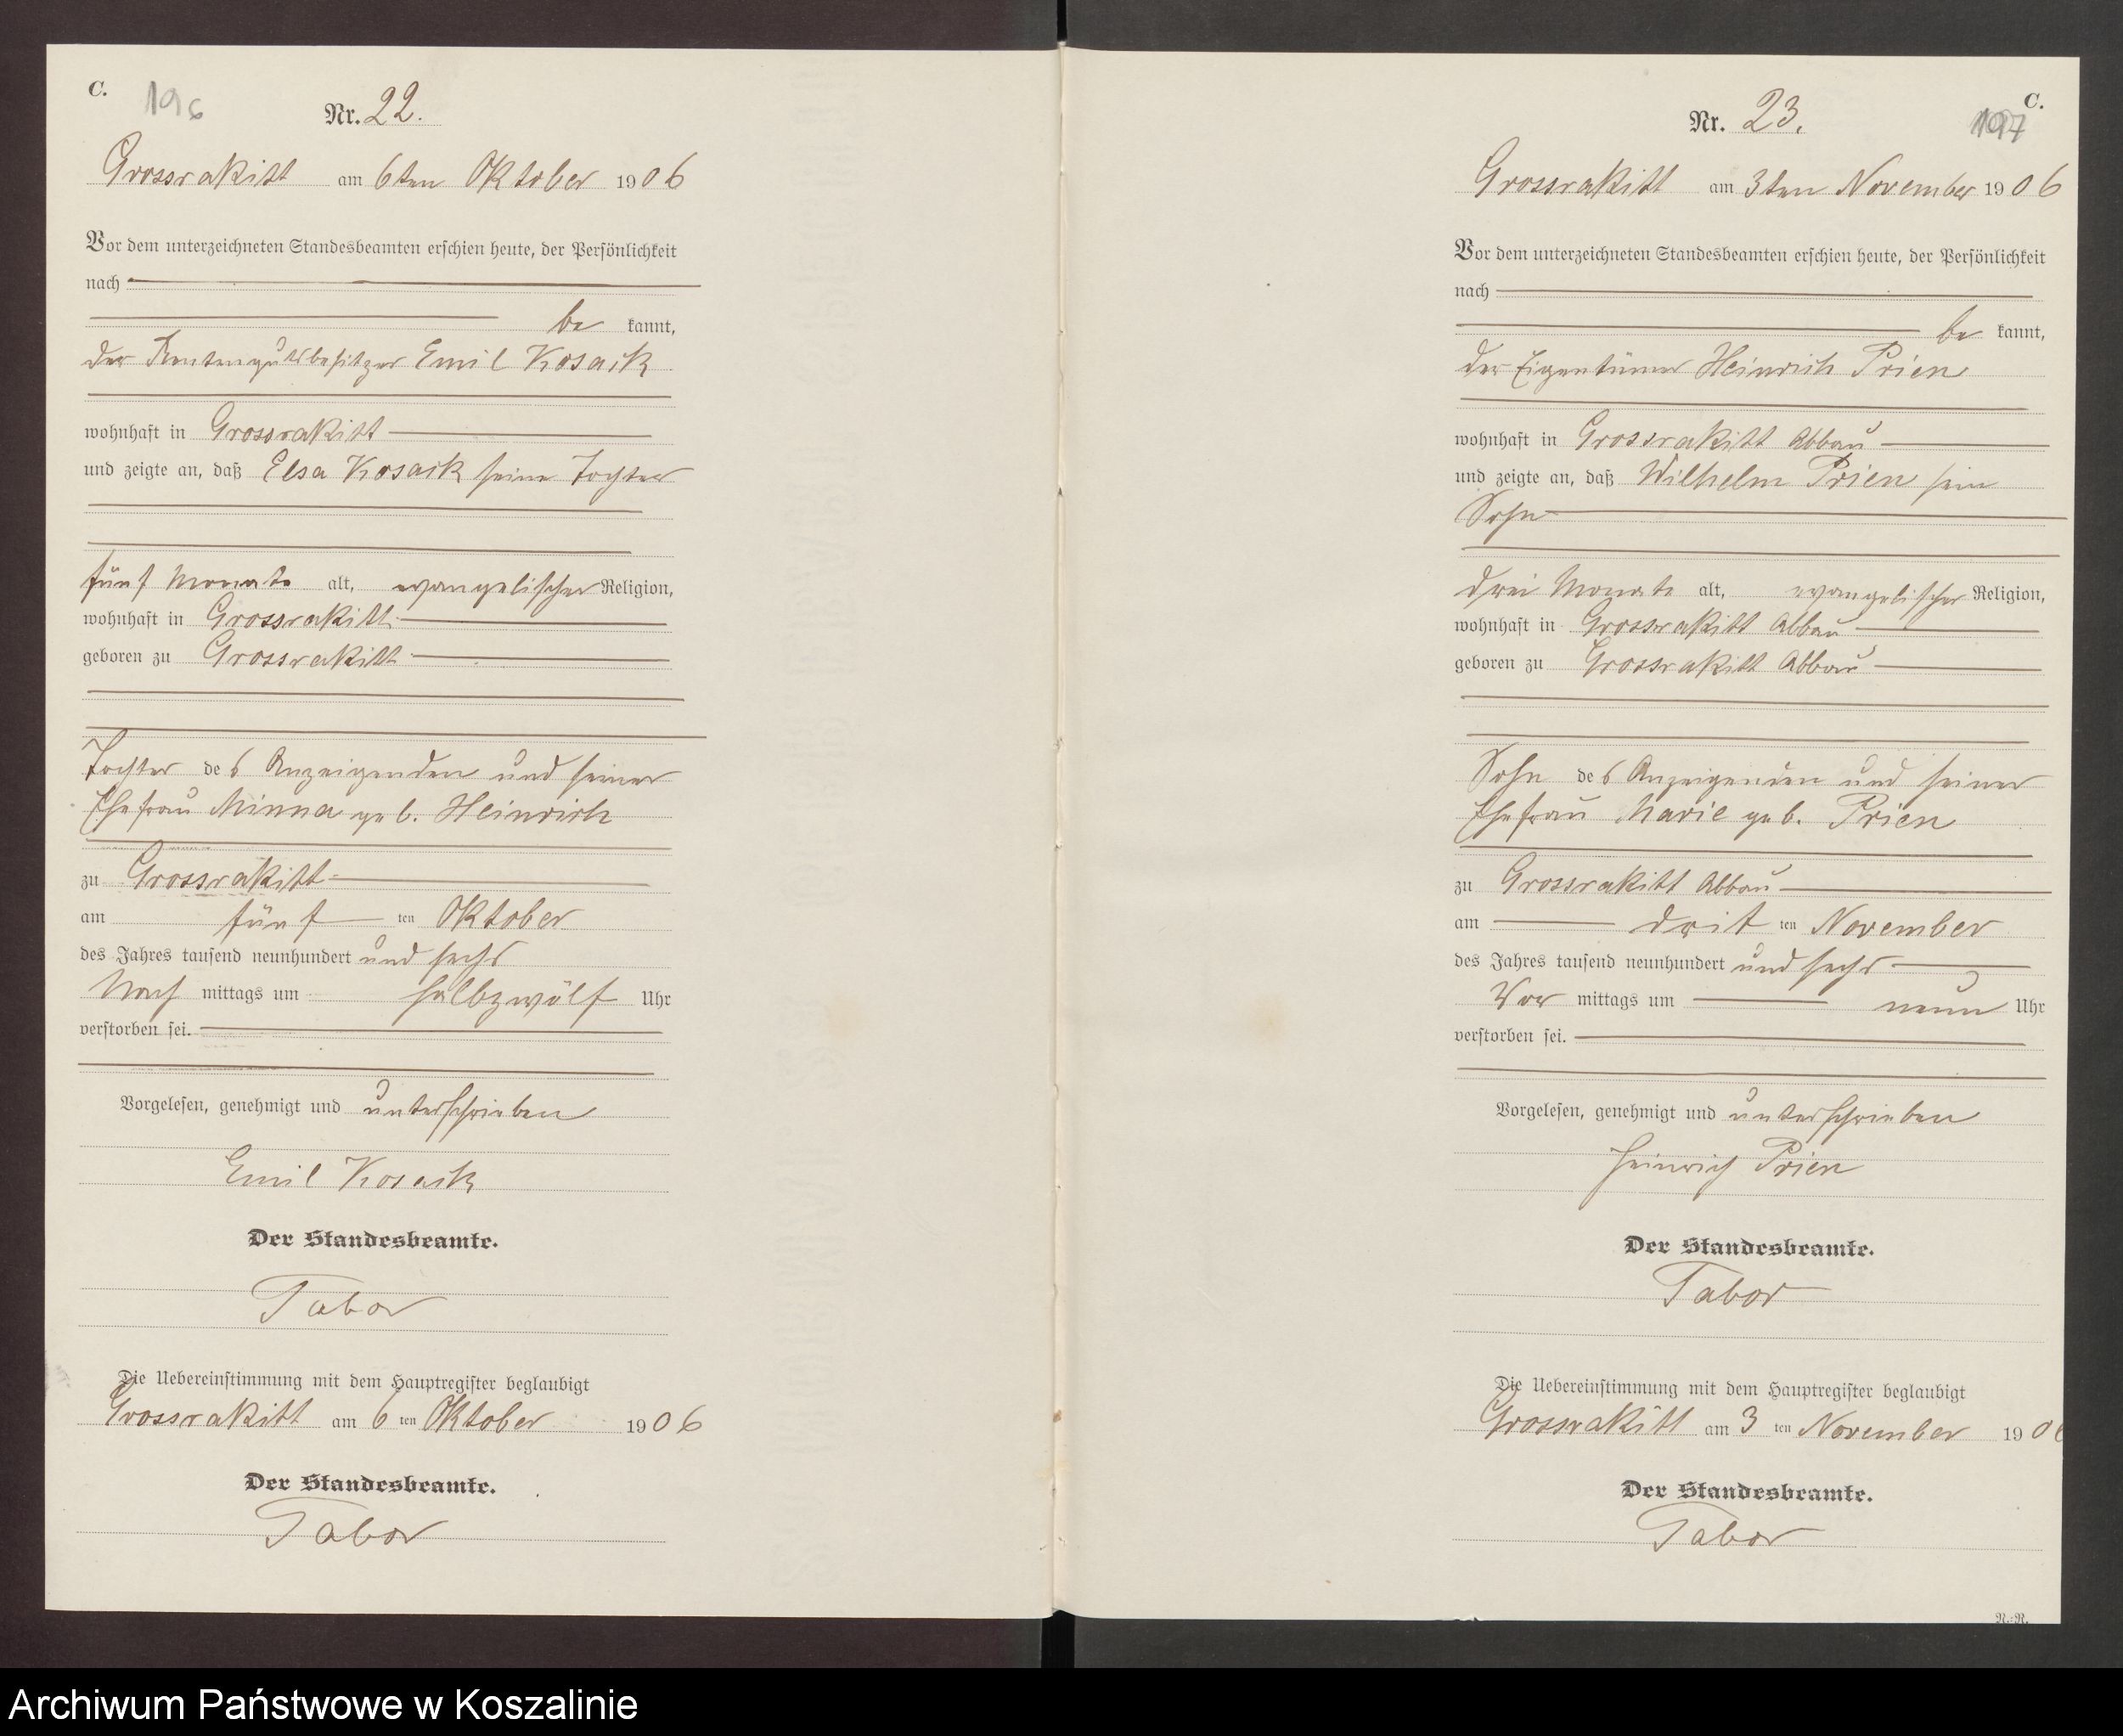 C.
196
Nr. 22.
Grossrakitt am 6ten Oktober 1906
Vor dem unterzeichneten Standesbeamten erschien heute, der Persönlichkeit
nach
be kannt,
der Rentengutsbesitzer Emil Kosack
wohnhaft in Grossrakitt
und zeigte an, daß Elsa Kosack seine Tochter
fünf Monate alt, evangelischer Religion,
wohnhaft in Grossrakitt
geboren zu Grossrakitt
Tochter des Anzeigenden und seiner
Ehefrau Minna geb. Heinrich
zu Grossrakitt
am fünf ten Oktober
des Jahres tausend neunhundert und sechs
Nach mittags um halbzwölf Uhr
verstorben sei.
Vorgelesen, genehmigt und unterschrieben
Emil Kosack
Der Standesbeamte.
Tabor
Die Uebereinstimmung mit dem Hauptregister beglaubigt
Grossrakitt am 6 ten Oktober 1906
Der Standesbeamte.
Tabor
C.
197
Nr. 23.
Grossrakitt am 3ten November 1906
Vor dem unterzeichneten Standesbeamten erschien heute, der Persönlichkeit
nach
be kannt,
der Eigentümer Heinrich Prien
wohnhaft in Grossrakitt Abbau
und zeigte an, daß Wilhelm Prien sein
Sohn
drei Monate alt, evangelischer Religion,
wohnhaft in Grossrakitt Abbau
geboren zu Grossrakitt Abbau
Sohn des Anzeigenden und seiner
Ehefrau Marie geb. Prien
zu Grossrakitt Abbau
am drit ten November
des Jahres tausend neunhundert und sechs
Vor mittags um neun Uhr
verstorben sei.
Vorgelesen, genehmigt und unterschrieben
Heinrich Prien
Der Standesbeamte.
Tabor
Die Uebereinstimmung mit dem Hauptregister beglaubigt
Grossrakitt am 3 ten November 1906
Der Standesbeamte.
Tabor
N.-R.
Archiwum Państwowe w Koszalinie